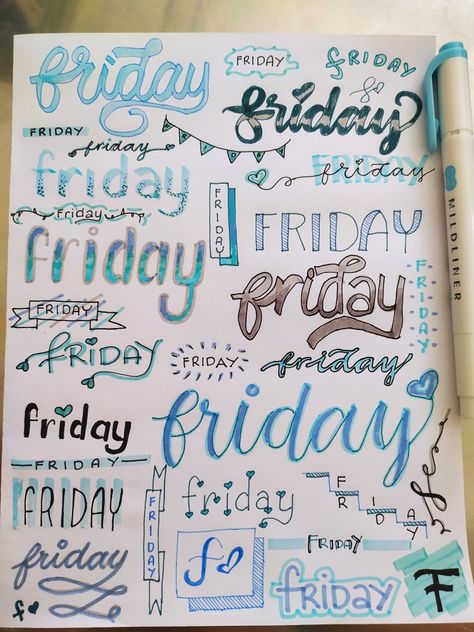 friday
FRIDAY
FRIDAY
f♡
friday
FRIDAY
friday
friday
FRIDAY
friday
FRIDAY
FRIDAY
FRIDAY
friday
friday
FRIDAY
MILDLINER
FRIDAY
FRIDAY
FRIDAY
friday
friday
friday
FRIDAY
FRIDAY
FRIDAY
friday
FR
ID
AY
f♡
FRIDAY
friday
FRIDAY
F
f♡